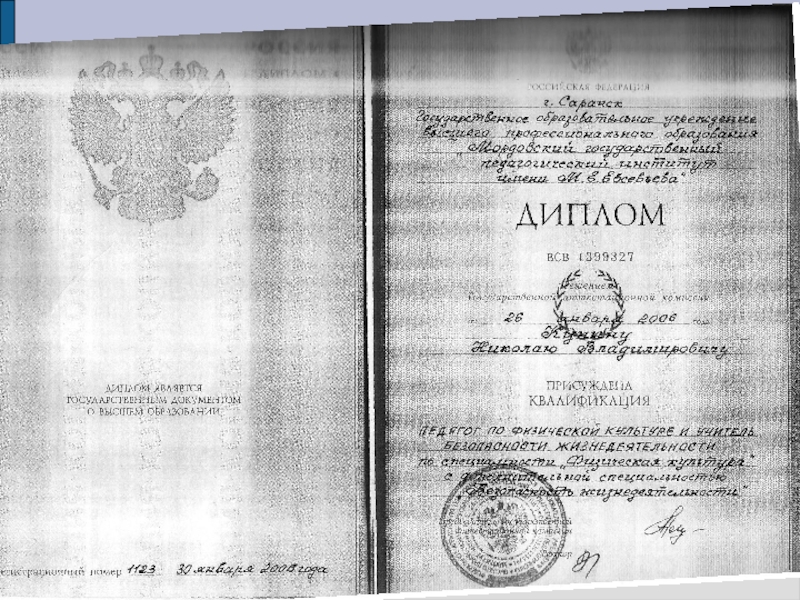 ДИПЛОМ ЯВЛЯЕТСЯ
ГОСУДАРСТВЕННЫМ ДОКУМЕНТОМ
О ВЫСШЕМ ОБРАЗОВАНИИ
Регистрационный номер 1123 30 января 2006 года
РОССИЙСКАЯ ФЕДЕРАЦИЯ
г. Саранск
Государственное образовательное учреждение
высшего профессионального образования
"Мордовский государственный
педагогический институт
имени М.Е. Евсевьева"
ДИПЛОМ
ВСВ 1399327
Решением
Государственной аттестационной комиссии
от 26 января 2006 года
Николаю Владимировичу
ПРИСУЖДЕНА
КВАЛИФИКАЦИЯ
ПЕДАГОГ ПО ФИЗИЧЕСКОЙ КУЛЬТУРЕ И УЧИТЕЛЬ
БЕЗОПАСНОСТИ ЖИЗНЕДЕЯТЕЛЬНОСТИ
по специальности "Физическая культура"
с дополнительной специальностью
"Безопасность жизнедеятельности"
Председатель Государственной
аттестационной комиссии
Ректор